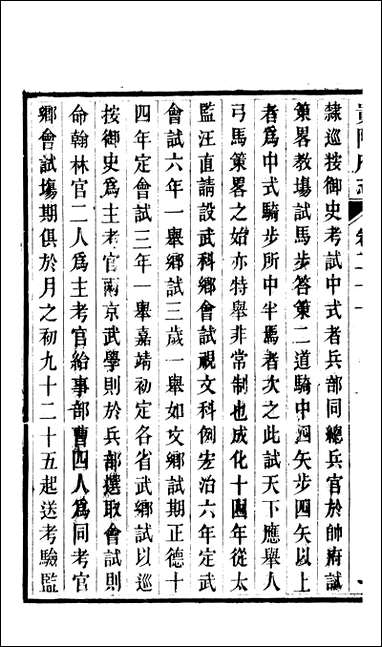 貴陽府志
卷二十一
隸巡按御史考試中式者兵部同總兵官於帥府試
策畧教場試馬步答策二道騎中四矢步四矢以上
者爲中式騎步所中半焉者次之此試天下應舉人
弓馬策畧之始亦特舉非常制也成化十四年從太
監汪直請設武科鄉會試視文科例宏治六年定武
會試六年一舉鄉試三歲一舉如文鄉試期正德十
四年定會試三年一舉嘉靖初定各省武鄉試以巡
按御史爲主考官兩京武學則於兵部選取會試則
命翰林官二人爲主考官給事部曹四人爲同考官
鄉會試塲期俱於月之初九十二十五起送考驗監